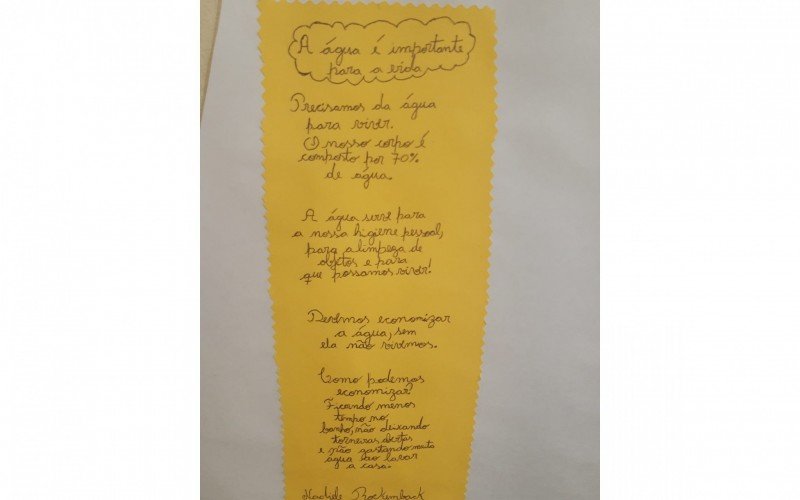 A água é importante
para a vida
Precisamos da água
para viver.
O nosso corpo é
comporto por 70%
de água.
A água serve para
a nossa higiene pessoal,
para a limpeza de
objetos e para
que possamos viver!
Devemos economizar
a água, sem
ela não vivemos.
Como podemos
economizar?
Ficando menos
tempo no
banho, não deixando
torneiras abertas
e não gastando muita
água ao lavar
a casa.
Rockemback